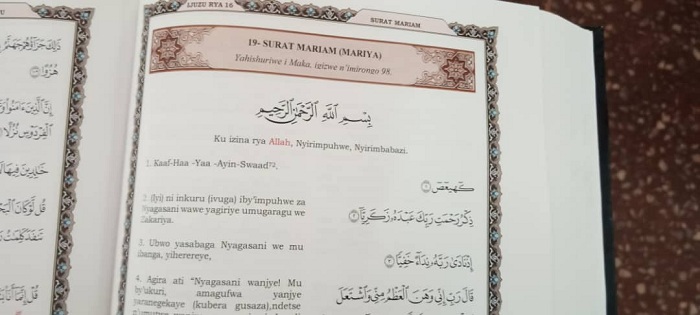 IJUZU RYA 16
SURAT MARIAM
19- SURAT MARIAM (MARIYA)
Yahishuriwe i Maka, igizwe n'imirongo 98.
بِسْمِ اللَّهِ الرَّحْمَٰنِ الرَّحِيمِ
Ku izina rya Allah, Nyirimpuhwe, Nyirimbabazi.
1. Kaaf-Haa -Yaa -Ayin-Swaad72.
كٓهيعٓصٓ ١
2. (Iyi) ni inkuru (ivuga) iby'impuhwe za
Nyagasani wawe yagiriye umugaragu we
Zakariya.
ذِكْرُ رَحْمَتِ رَبِّكَ عَبْدَهُۥ زَكَرِيَّآ ٢
3. Ubwo yasabaga Nyagasani we mu
ibanga, yiherereye,
إِذْ نَادَىٰ رَبَّهُۥ نِدَآءً خَفِيًّا ٣
4. Agira ati "Nyagasani wanjye! Mu
by'ukuri, amagufwa yanjye
yaranegekaye (kubera gusaza),ndetse
قَالَ رَبِّ إِنِّي وَهَنَ ٱلْعَظْمُ مِنِّي وَٱشْتَعَلَ
ذَٰلِكَ جَزَآؤُهُمْ جَهَنَّمُ
هُزُوًا
إِنَّ ٱلَّذِينَ ءَامَنُوا۟
ٱلْفِرْدَوْسِ نُزُلًا
خَٰلِدِينَ فِيهَا
قُل لَّوْ كَانَ ٱلْبَحْرُ
قُلْ إِنَّمَآ أَنَا۠